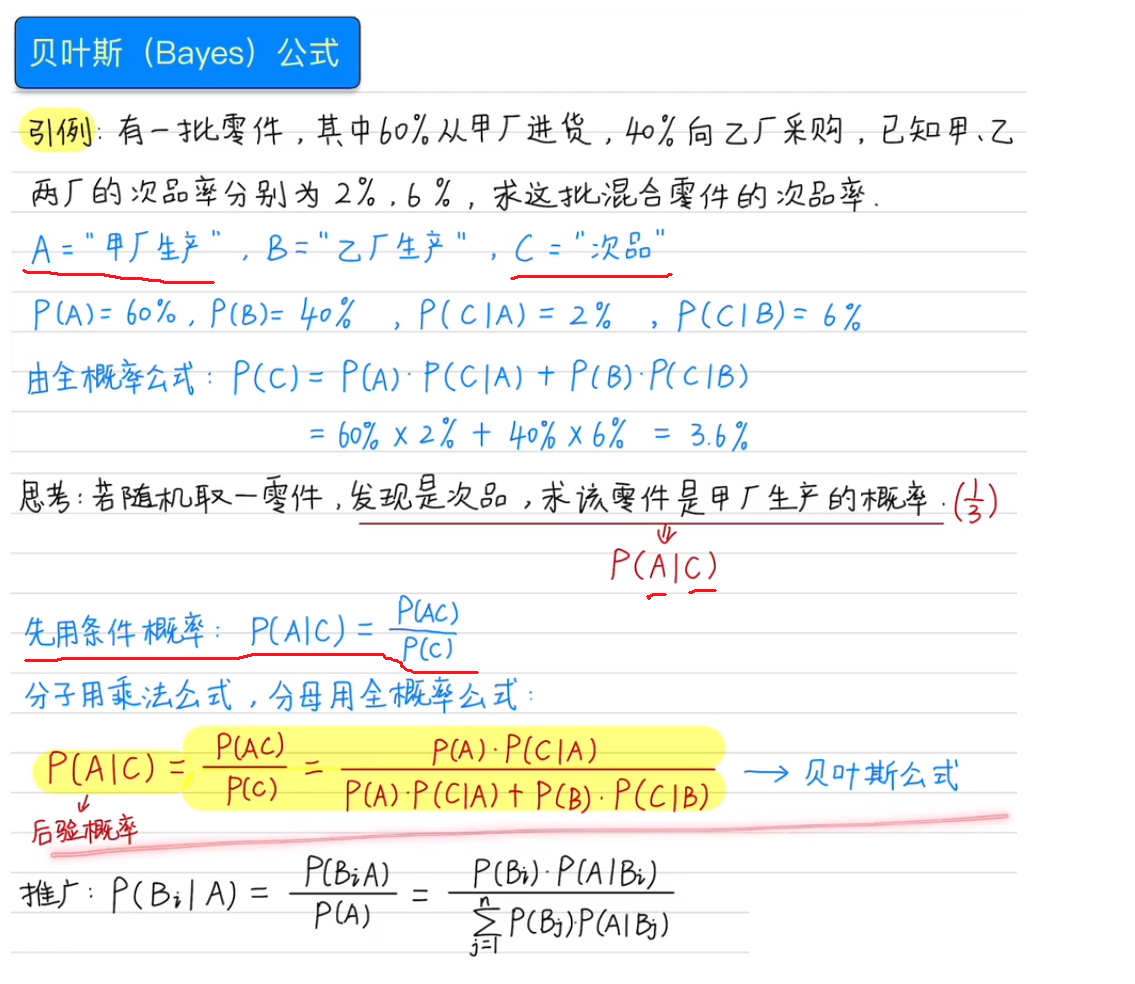 贝叶斯（Bayes）公式
引例: 有一批零件, 其中60%从甲厂进货, 40%向乙厂采购, 已知甲、乙
两厂的次品率分别为2%, 6%, 求这批混合零件的次品率.
A="甲厂生产", B="乙厂生产", C="次品"
P(A)=60%, P(B)=40%, P(C|A)=2%, P(C|B)=6%
由全概率公式: P(C)=P(A)·P(C|A)+P(B)·P(C|B)
=60%×2%+40%×6%=3.6%
思考:若随机取一零件,发现是次品,求该零件是甲厂生产的概率.(1/3)
⇓
P(A|C)
先用条件概率: P(A|C)=P(AC)/P(C)
分子用乘法公式, 分母用全概率公式:
P(A|C)=P(AC)/P(C)=P(A)·P(C|A)/P(A)·P(C|A)+P(B)·P(C|B) → 贝叶斯公式
↓
后验概率
推广: P(Bi|A)=P(BiA)/P(A)=P(Bi)·P(A|Bi)/∑_{j=1}^{n}P(Bj)·P(A|Bj)